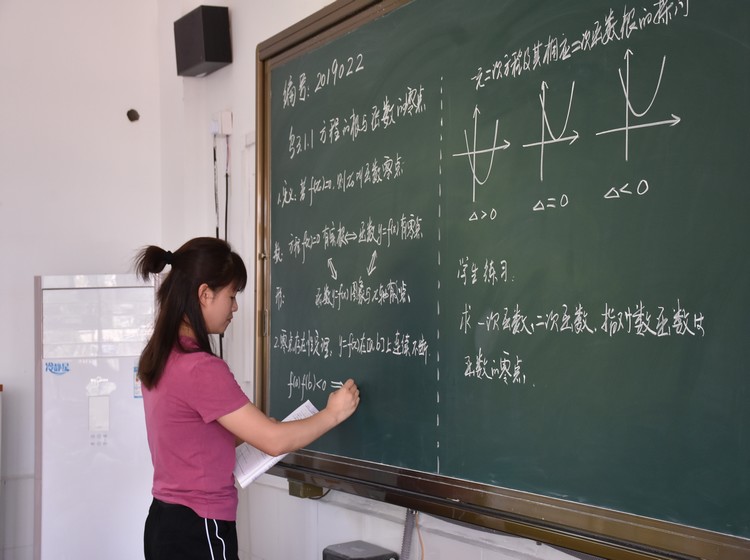 编号: 2019022
§3.1.1 方程的根与函数的零点
1.定义: 若 f(x₀)=0, 则 x₀ 叫函数零点
数: 方程 f(x)=0 有实根 ⇔ 函数 y=f(x) 有零点
形: 函数 y=f(x) 图象与 x 轴有交点
2.零点存在性定理, y=f(x) 在 [a,b] 上连续不断.
f(a)f(b)<0 ⇒
一元二次方程及其相应二次函数根的探讨
Δ>0 Δ=0 Δ<0
学生练习.
求一次函数、二次函数、指对数函数
函数的零点.